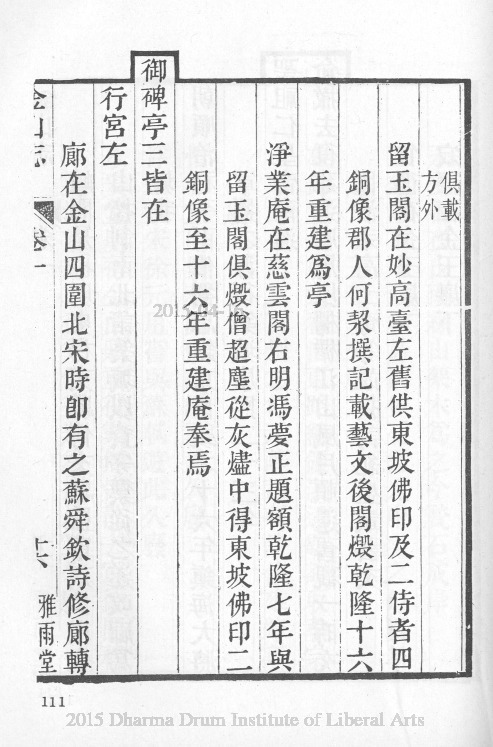 俱載
方外
留玉閣在妙高臺左舊供東坡佛印及二侍者四
銅像郡人何洯撰記載藝文後閣燬乾隆十六
年重建爲亭
淨業庵在慈雲閣右明馮夢正題額乾隆七年與
留玉閣俱燬僧超塵從灰燼中得東坡佛印二
銅像至十六年重建庵奉焉
御碑亭三皆在
行宮左
廊在金山四圍北宋時卽有之蘇舜欽詩修廊轉
金山志 卷一 十六 雅雨堂
111
2015 Dharma Drum Institute of Liberal Arts